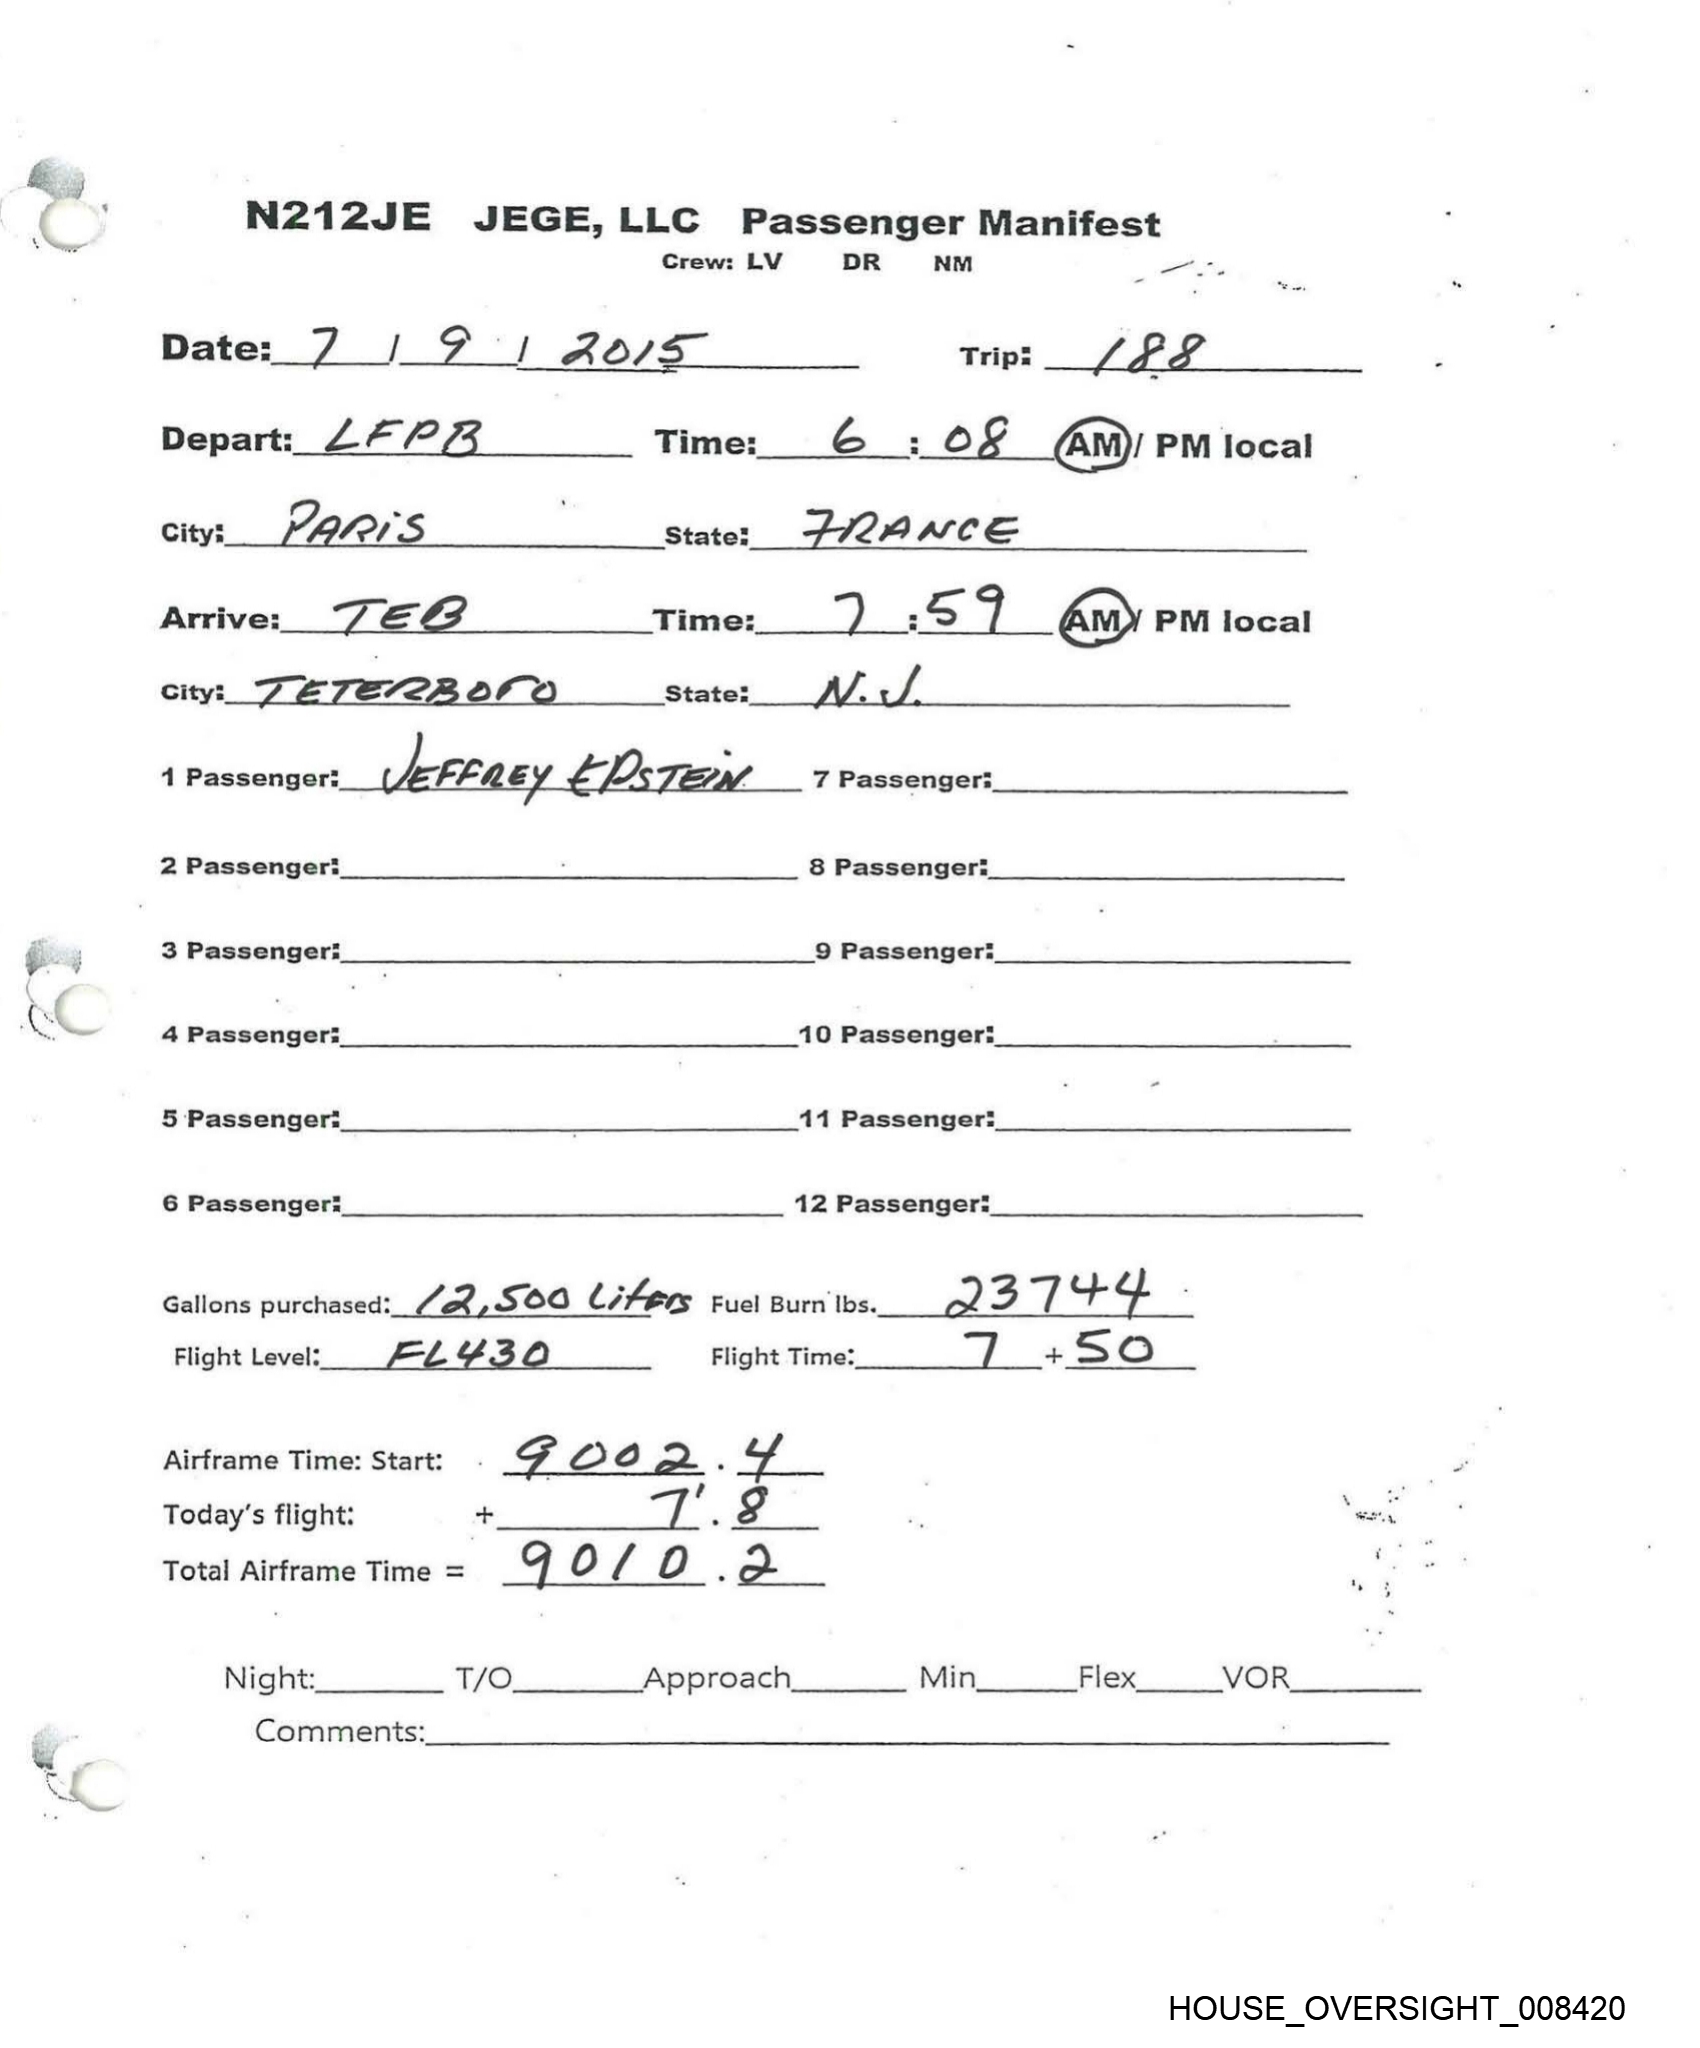 N212JE JEGE, LLC Passenger Manifest
Crew: LV DR NM
Date: 7 / 9 / 2015 Trip: 188
Depart: LFPB Time: 6 : 08 AM / PM local
City: PARIS State: FRANCE
Arrive: TEB Time: 7 : 59 AM / PM local
City: TETERBORO State: N.J.
1 Passenger: JEFFREY EPSTEIN 7 Passenger:
2 Passenger: 8 Passenger:
3 Passenger: 9 Passenger:
4 Passenger: 10 Passenger:
5 Passenger: 11 Passenger:
6 Passenger: 12 Passenger:
Gallons purchased: 12,500 Liters Fuel Burn lbs. 23744
Flight Level: FL430 Flight Time: 7 + 50
Airframe Time: Start: 9002.4
Today's flight: + 7.8
Total Airframe Time = 9010.2
Night: T/O Approach Min Flex VOR
Comments:
HOUSE_OVERSIGHT_008420